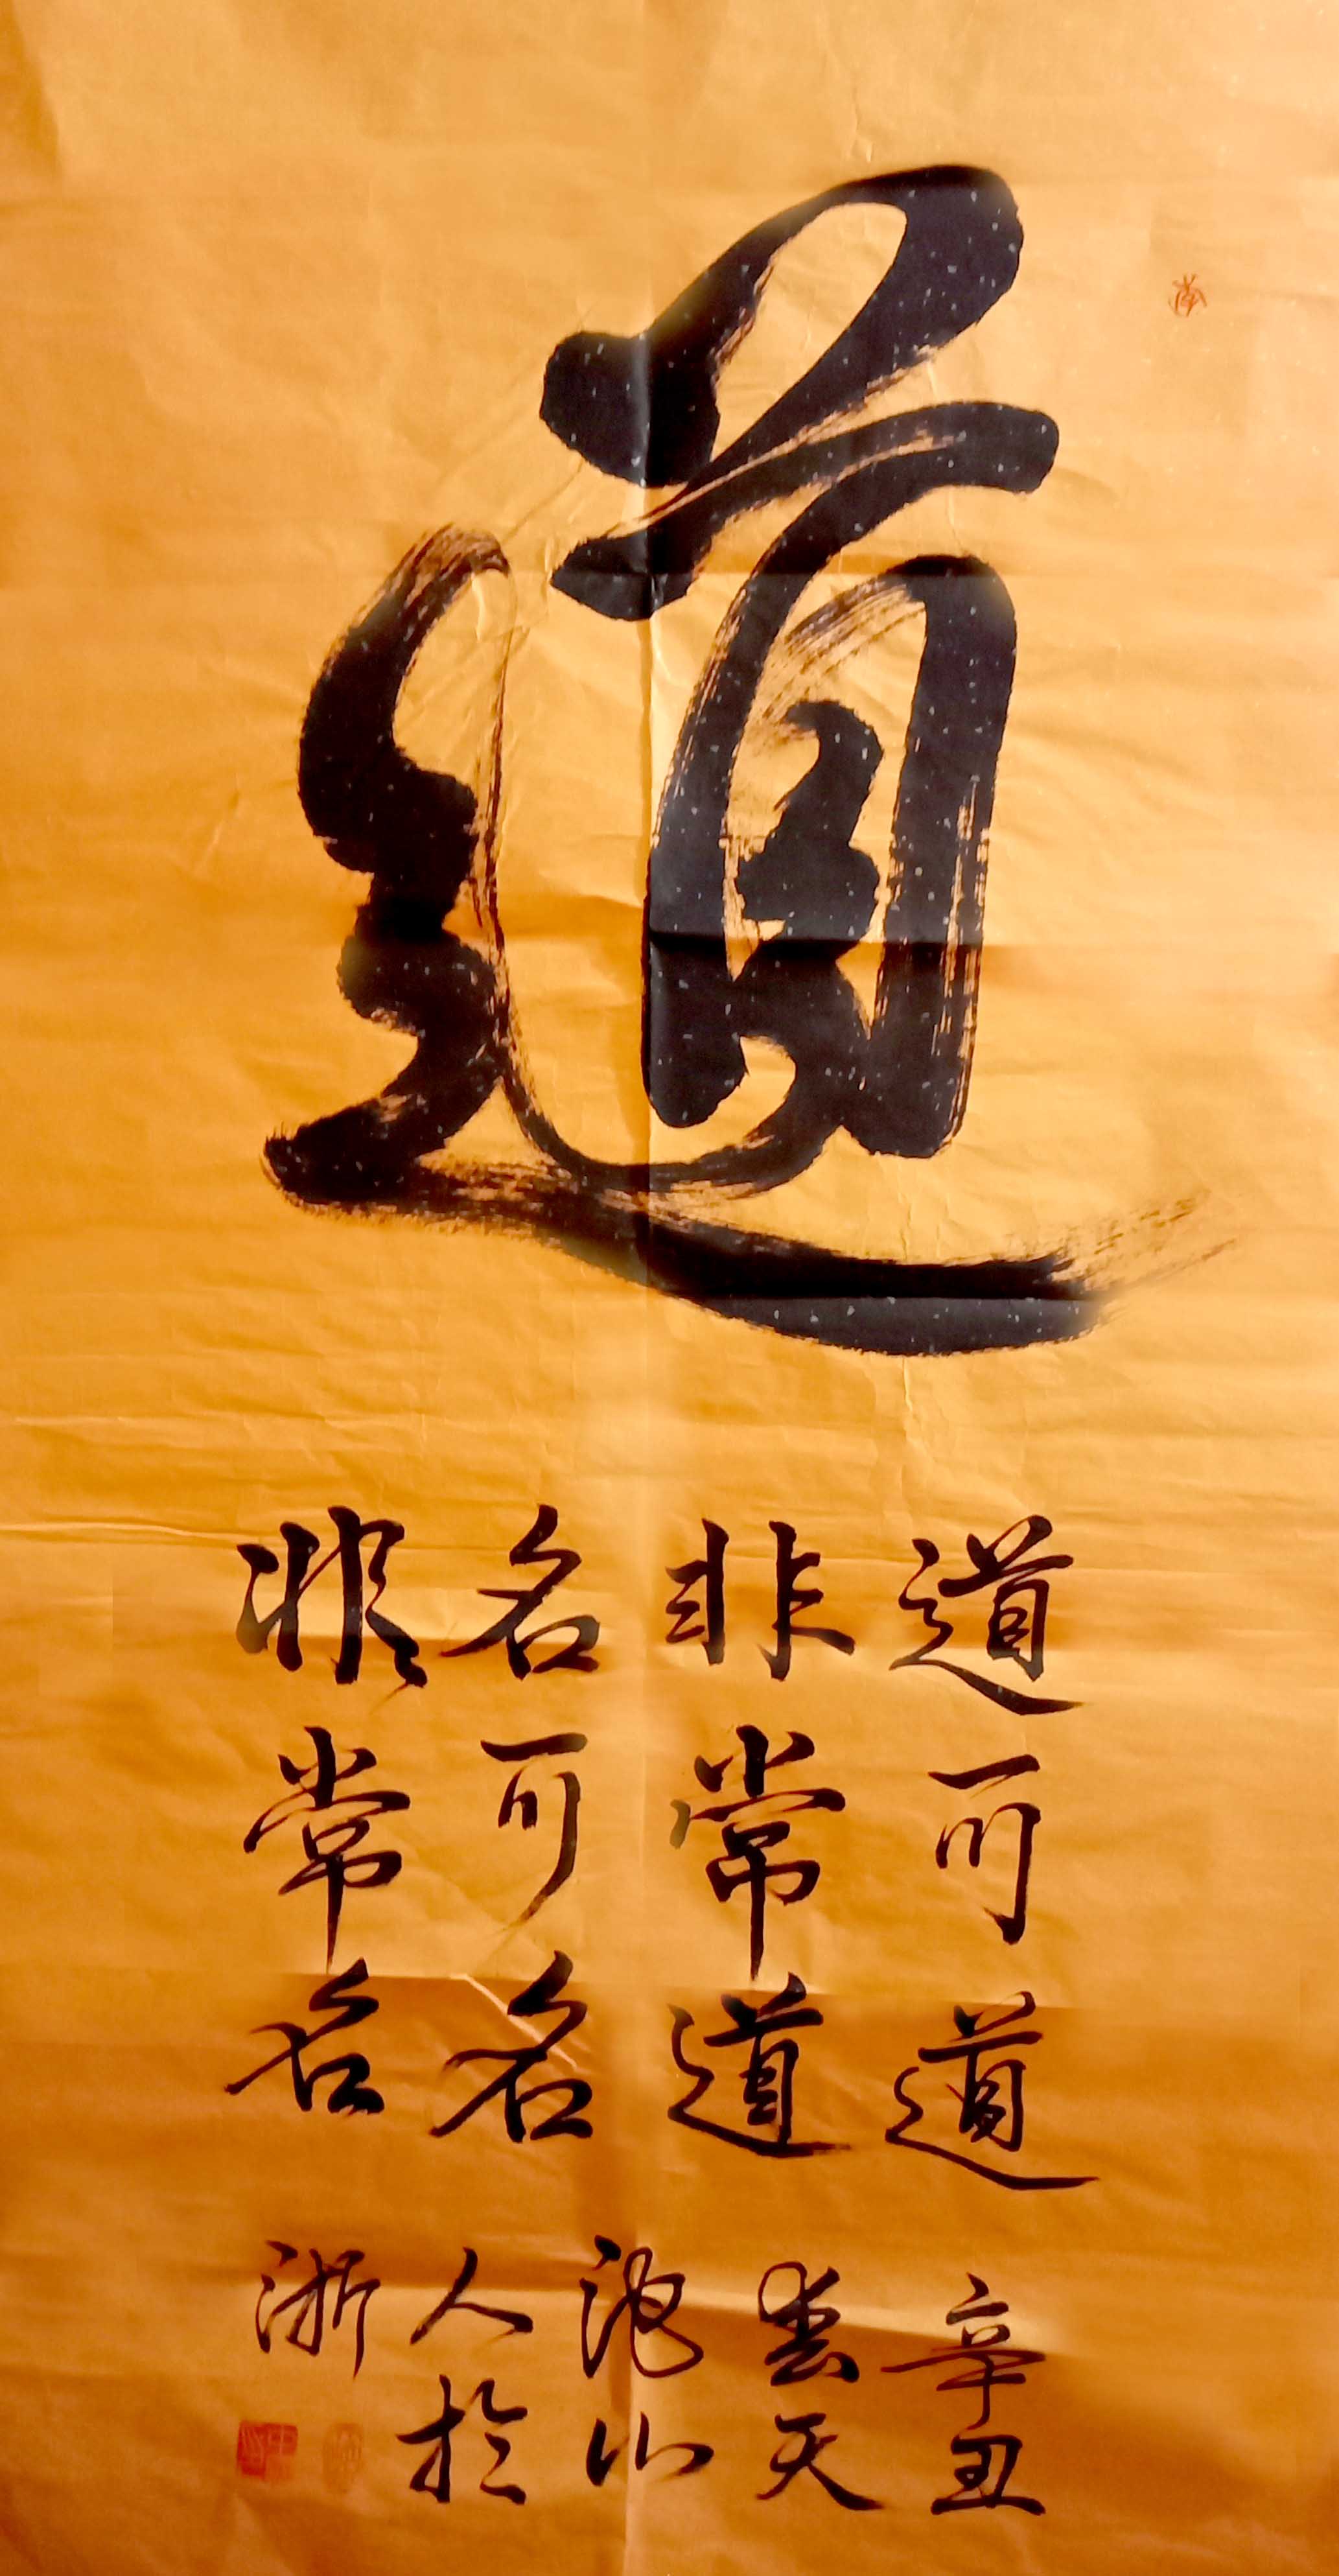 道
道可道
非常道
名可名
非常名
辛丑
天
山
人於
浙